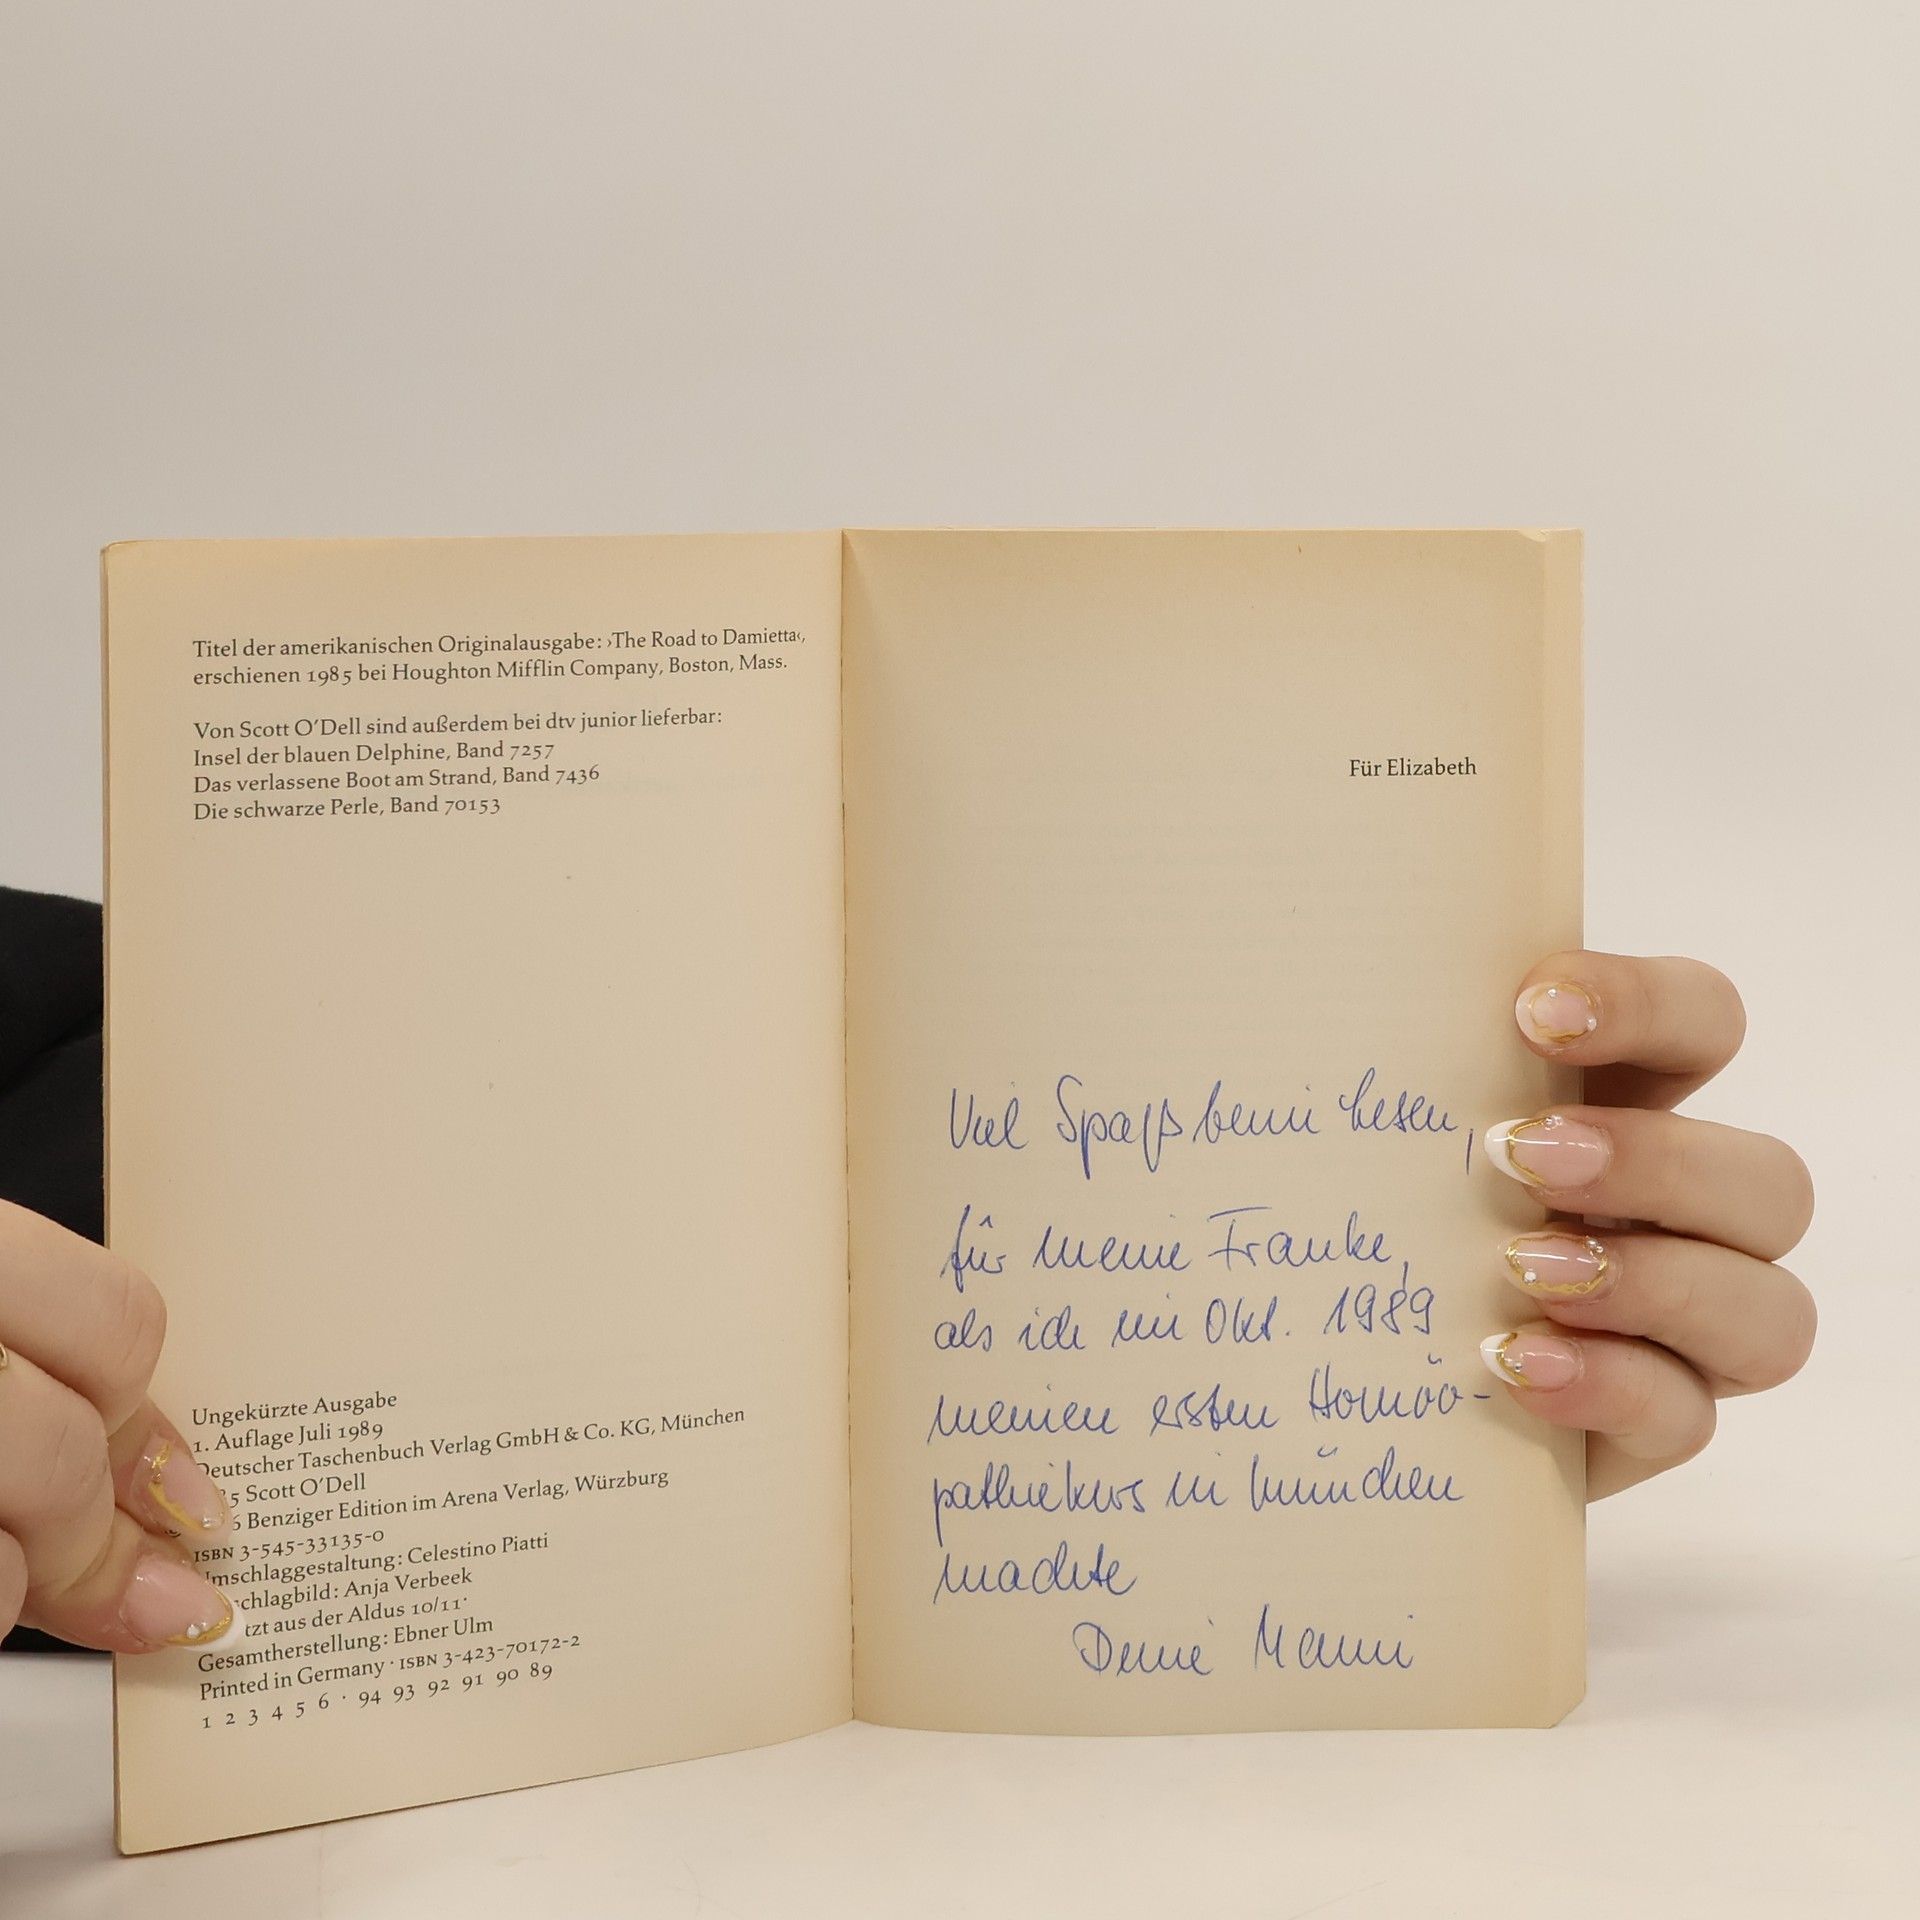 Titel der amerikanischen Originalausgabe: ›The Road to Damietta‹,
erschienen 1985 bei Houghton Mifflin Company, Boston, Mass.
Von Scott O'Dell sind außerdem bei dtv junior lieferbar:
Insel der blauen Delphine, Band 7257
Das verlassene Boot am Strand, Band 7436
Die schwarze Perle, Band 70153
Ungekürzte Ausgabe
1. Auflage Juli 1989
Deutscher Taschenbuch Verlag GmbH & Co. KG, München
5 Scott O'Dell
6 Benziger Edition im Arena Verlag, Würzburg
ISBN 3-545-33135-0
Umschlaggestaltung: Celestino Piatti
schlagbild: Anja Verbeek
tzt aus der Aldus 10/11·
Gesamtherstellung: Ebner Ulm
Printed in Germany · ISBN 3-423-70172-2
1 2 3 4 5 6 · 94 93 92 91 90 89
Für Elizabeth
Viel Spaß beim Lesen,
für meine Frauke,
als ich im Okt. 1989
meinen ersten Homöo-
pathiekurs in München
machte
Deine Mami